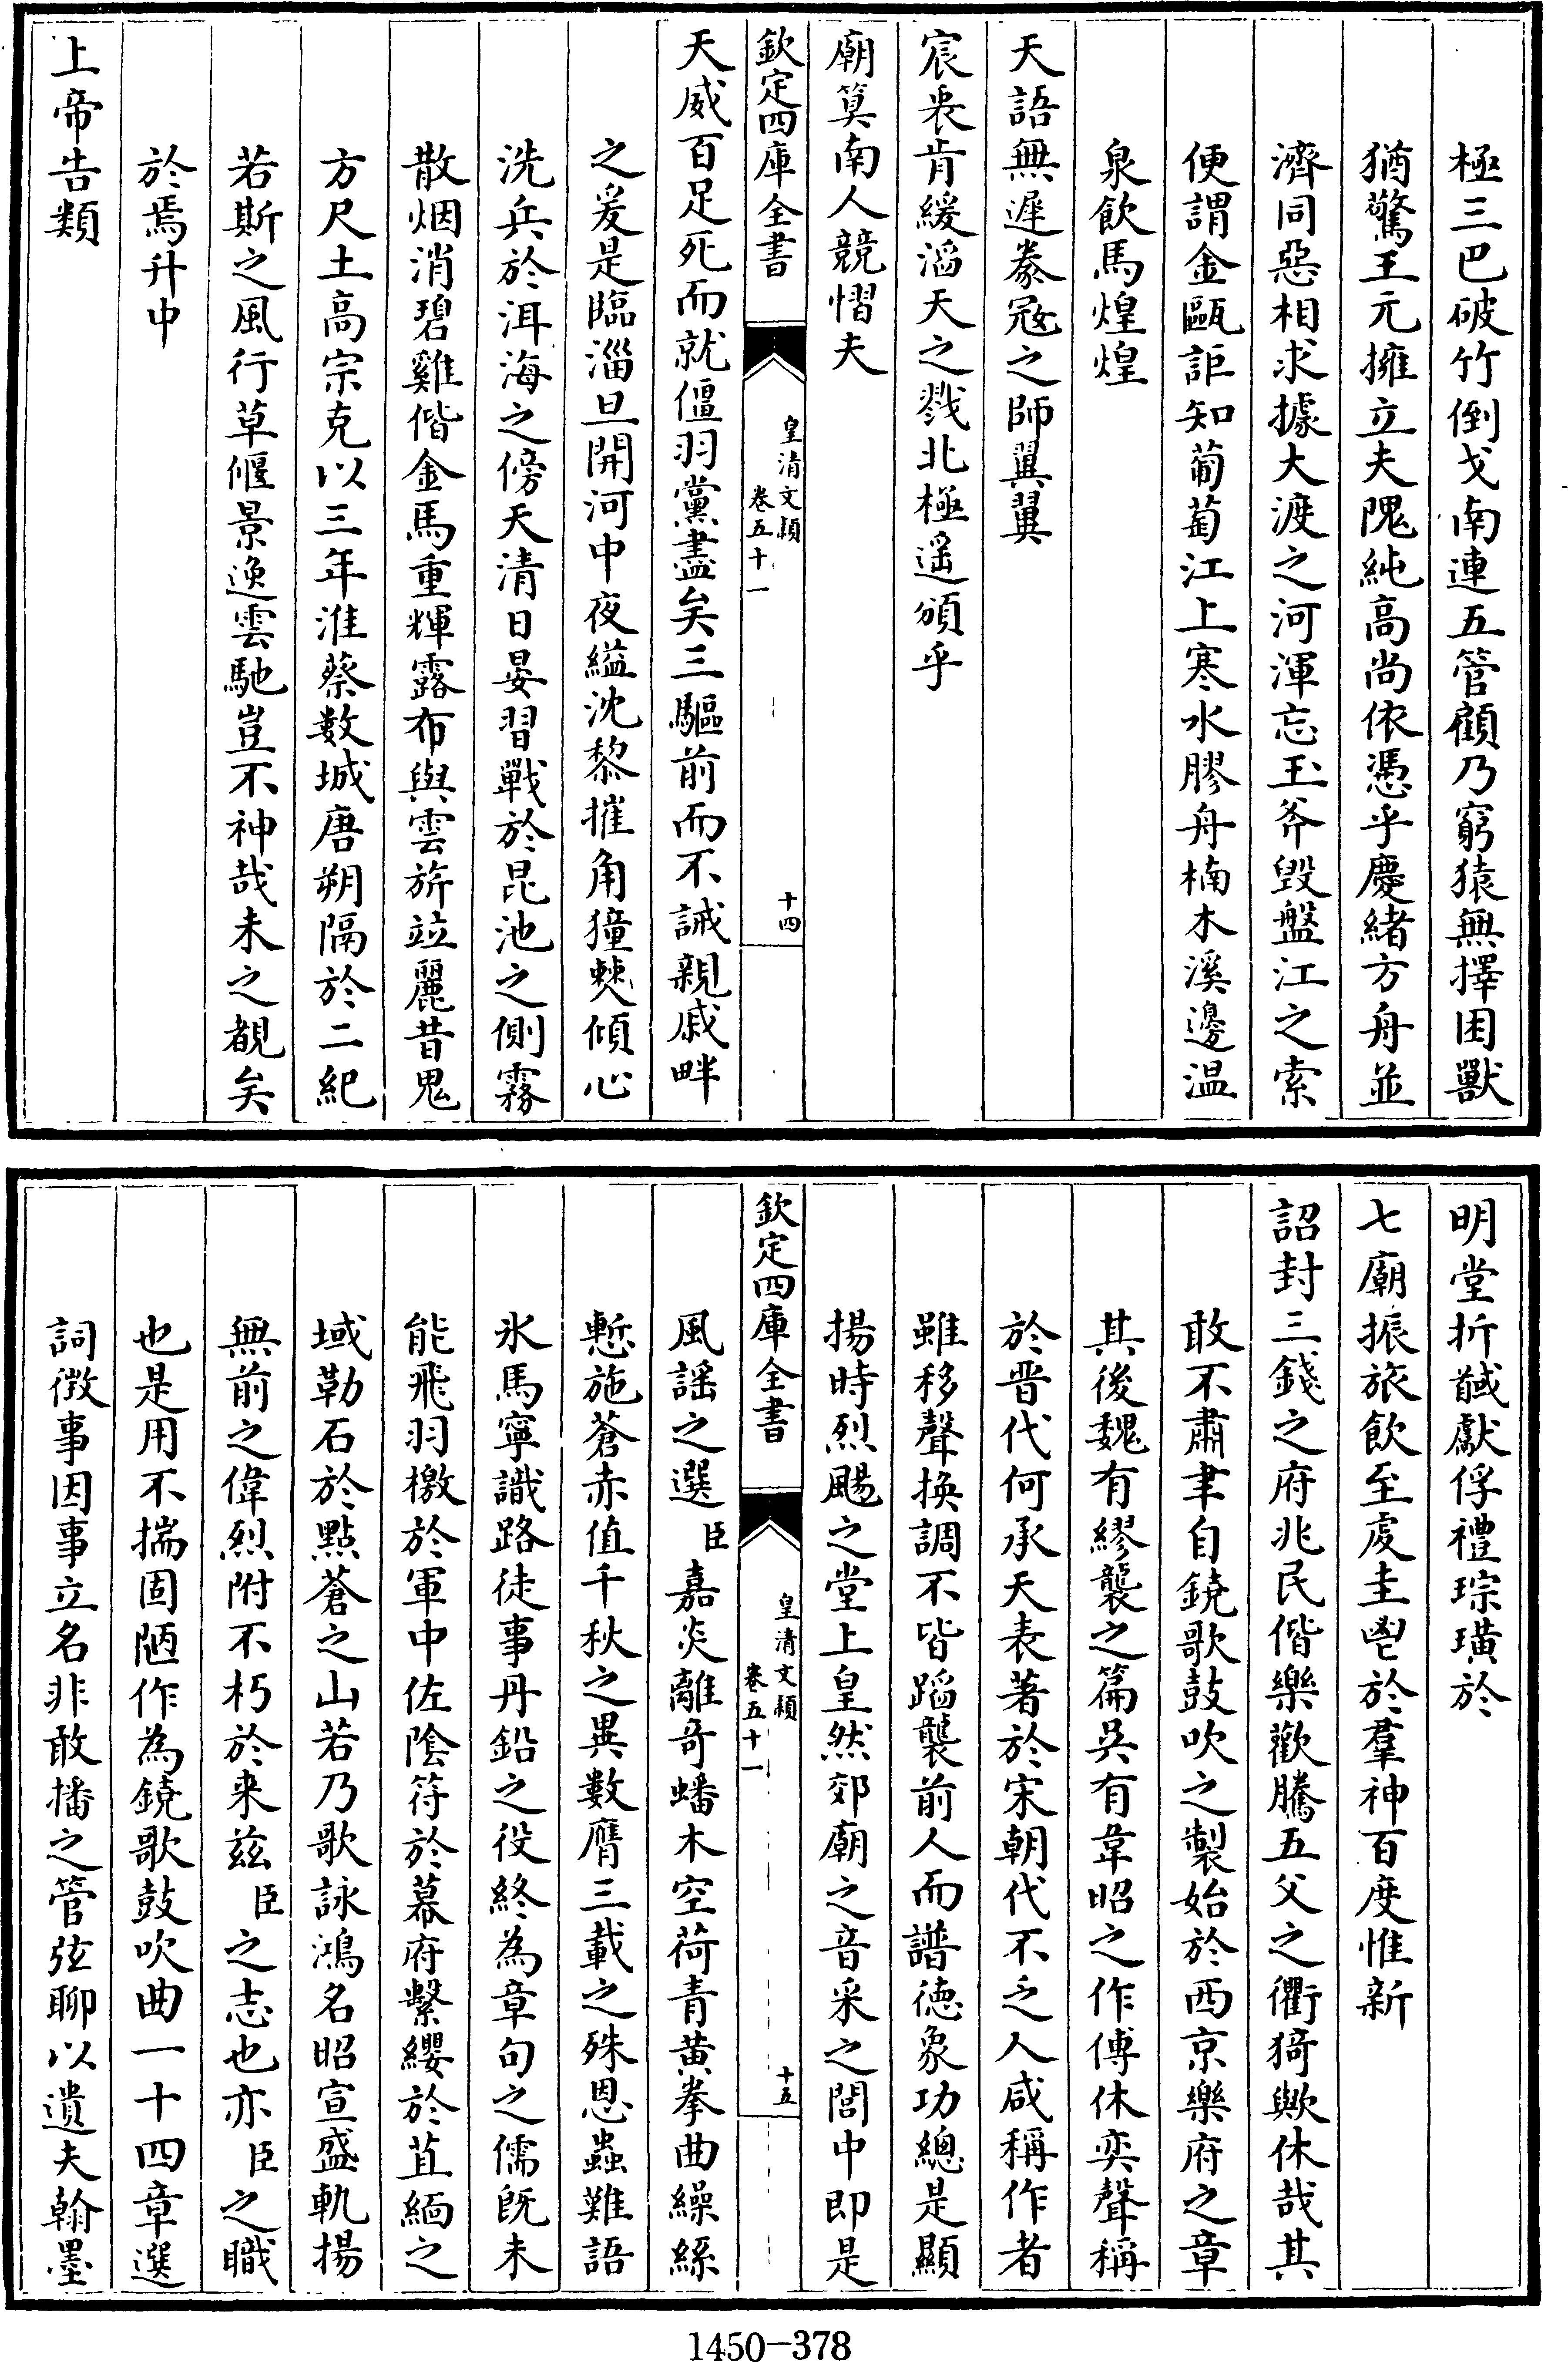 極三巴破竹倒戈南連五管顧乃窮猿無擇困獸
猶驚王元擁立夫隗純高尚依憑乎慶緒方舟並
濟同惡相求據大渡之河渾忘玉斧毀盤江之索
便謂金甌詎知葡萄江上寒水膠舟楠木溪邊温
泉飲馬煌煌
天語無遲豢冦之師翼翼
宸衷肯緩滔天之戮北極遥頒乎
廟筭南人競慴夫
欽定四庫全書
皇清文頴
卷五十一
十四
天威百足死而就僵羽黨盡矣三驅前而不誡親戚畔
之爰是臨淄旦開河中夜縋沈黎摧角獞僰傾心
洗兵於洱海之傍天清日晏習戰於昆池之側霧
散烟消碧雞偕金馬重輝露布與雲旂竝麗昔鬼
方尺土高宗克以三年淮蔡數城唐朔隔於二紀
若斯之風行草偃景逸雲馳豈不神哉未之覩矣
於焉升中
上帝告類
明堂折馘獻俘禮琮璜於
七廟振旅飲至䖍圭鬯於羣神百度惟新
詔封三錢之府兆民偕樂歡騰五父之衢猗歟休哉其
敢不肅聿自鐃歌鼓吹之製始於西京樂府之章
其後魏有繆襲之篇吳有韋昭之作傅休奕聲稱
於晉代何承天表著於宋朝代不乏人咸稱作者
雖移聲換調不皆蹈襲前人而譜徳象功總是顯
揚時烈颺之堂上皇然郊廟之音采之閭中即是
欽定四庫全書
皇清文頴
卷五十一
十五
風謡之選臣嘉炎離奇蟠木空荷青黄拳曲繰絲
慙施蒼赤值千秋之異數膺三載之殊恩蟲難語
氷馬寧識路徒事丹鉛之役終為章句之儒既未
能飛羽檄於軍中佐陰符於幕府繫纓於苴緬之
域勒石於㸃蒼之山若乃歌詠鴻名昭宣盛軌揚
無前之偉烈附不朽於来兹臣之志也亦臣之職
也是用不揣固陋作為鐃歌鼓吹曲一十四章選
詞徴事因事立名非敢播之管弦聊以遺夫翰墨
1450-378